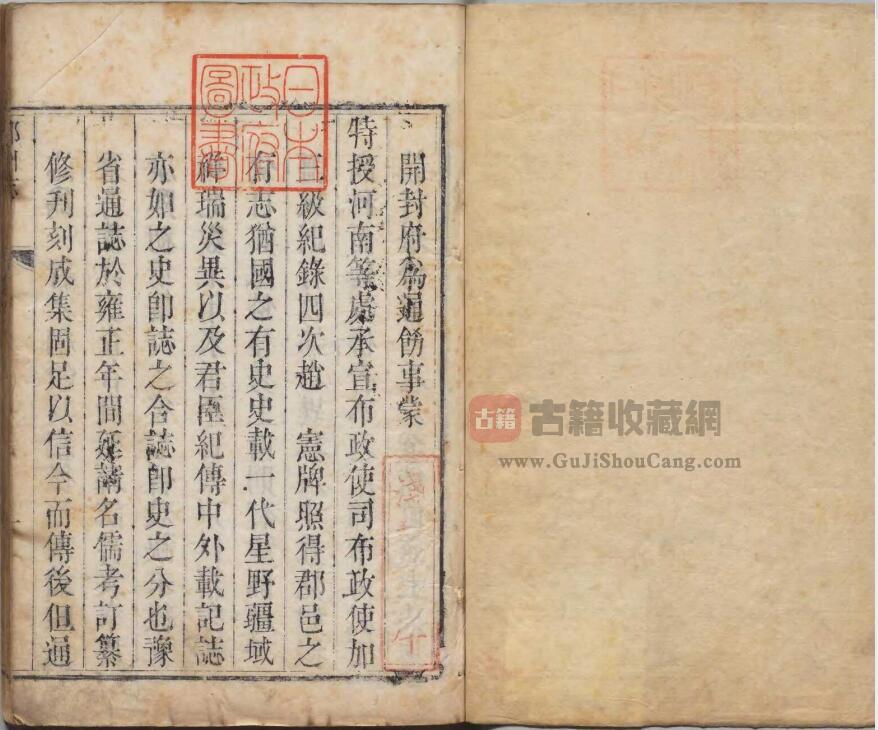 日本
政府
圖書
開封府為通飭事蒙
特授河南等處承宣布政使司布政使加
三級紀錄四次趙 憲牌照得郡邑之
有志猶國之有史史載一代星野疆域
祥瑞災異以及君臣紀傳中外載記誌
亦如之史即誌之合誌即史之分也豫
省通誌於雍正年間延請名儒考訂纂
修刊刻成集固足以信今而傳後但通
州
古籍
古籍收藏網
www.GuJiShouCang.com